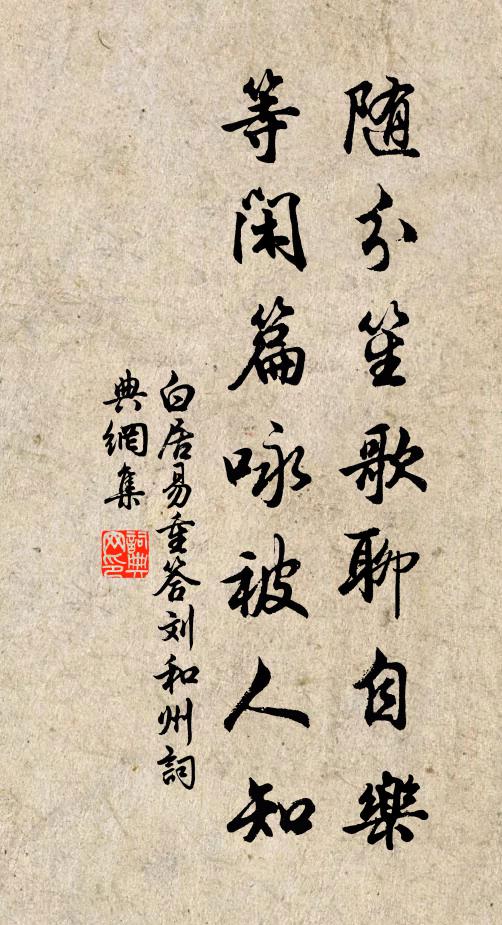 随分笙歌聊自樂
等閑篇咏被人知
白居易重答刘和州詞
典網集
詞典網印